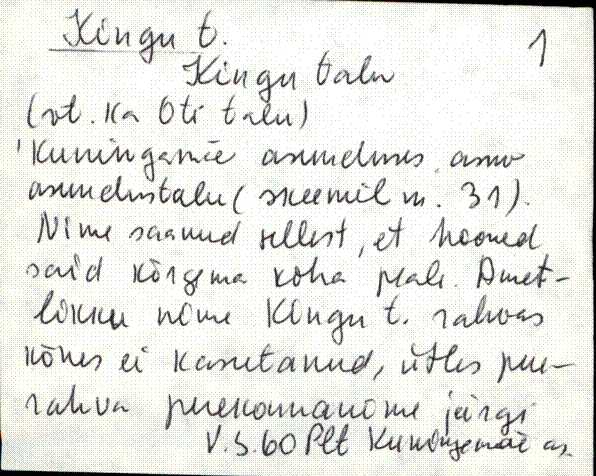 Kingu t.
1
Kingu talu
(vt. ka Oti talu)
Kuningamäe asunduses asuv
asundustalu (skeemil nr. 31).
Nime saanud sellest, et hooned
said kõrgema koha peale. Amet-
likku nime Kingu t. rahvas
kõnes ei kasutanud, ütles pere-
rahva perekonnanime järgi
V.S. 60 Plt Kuningamäe as.